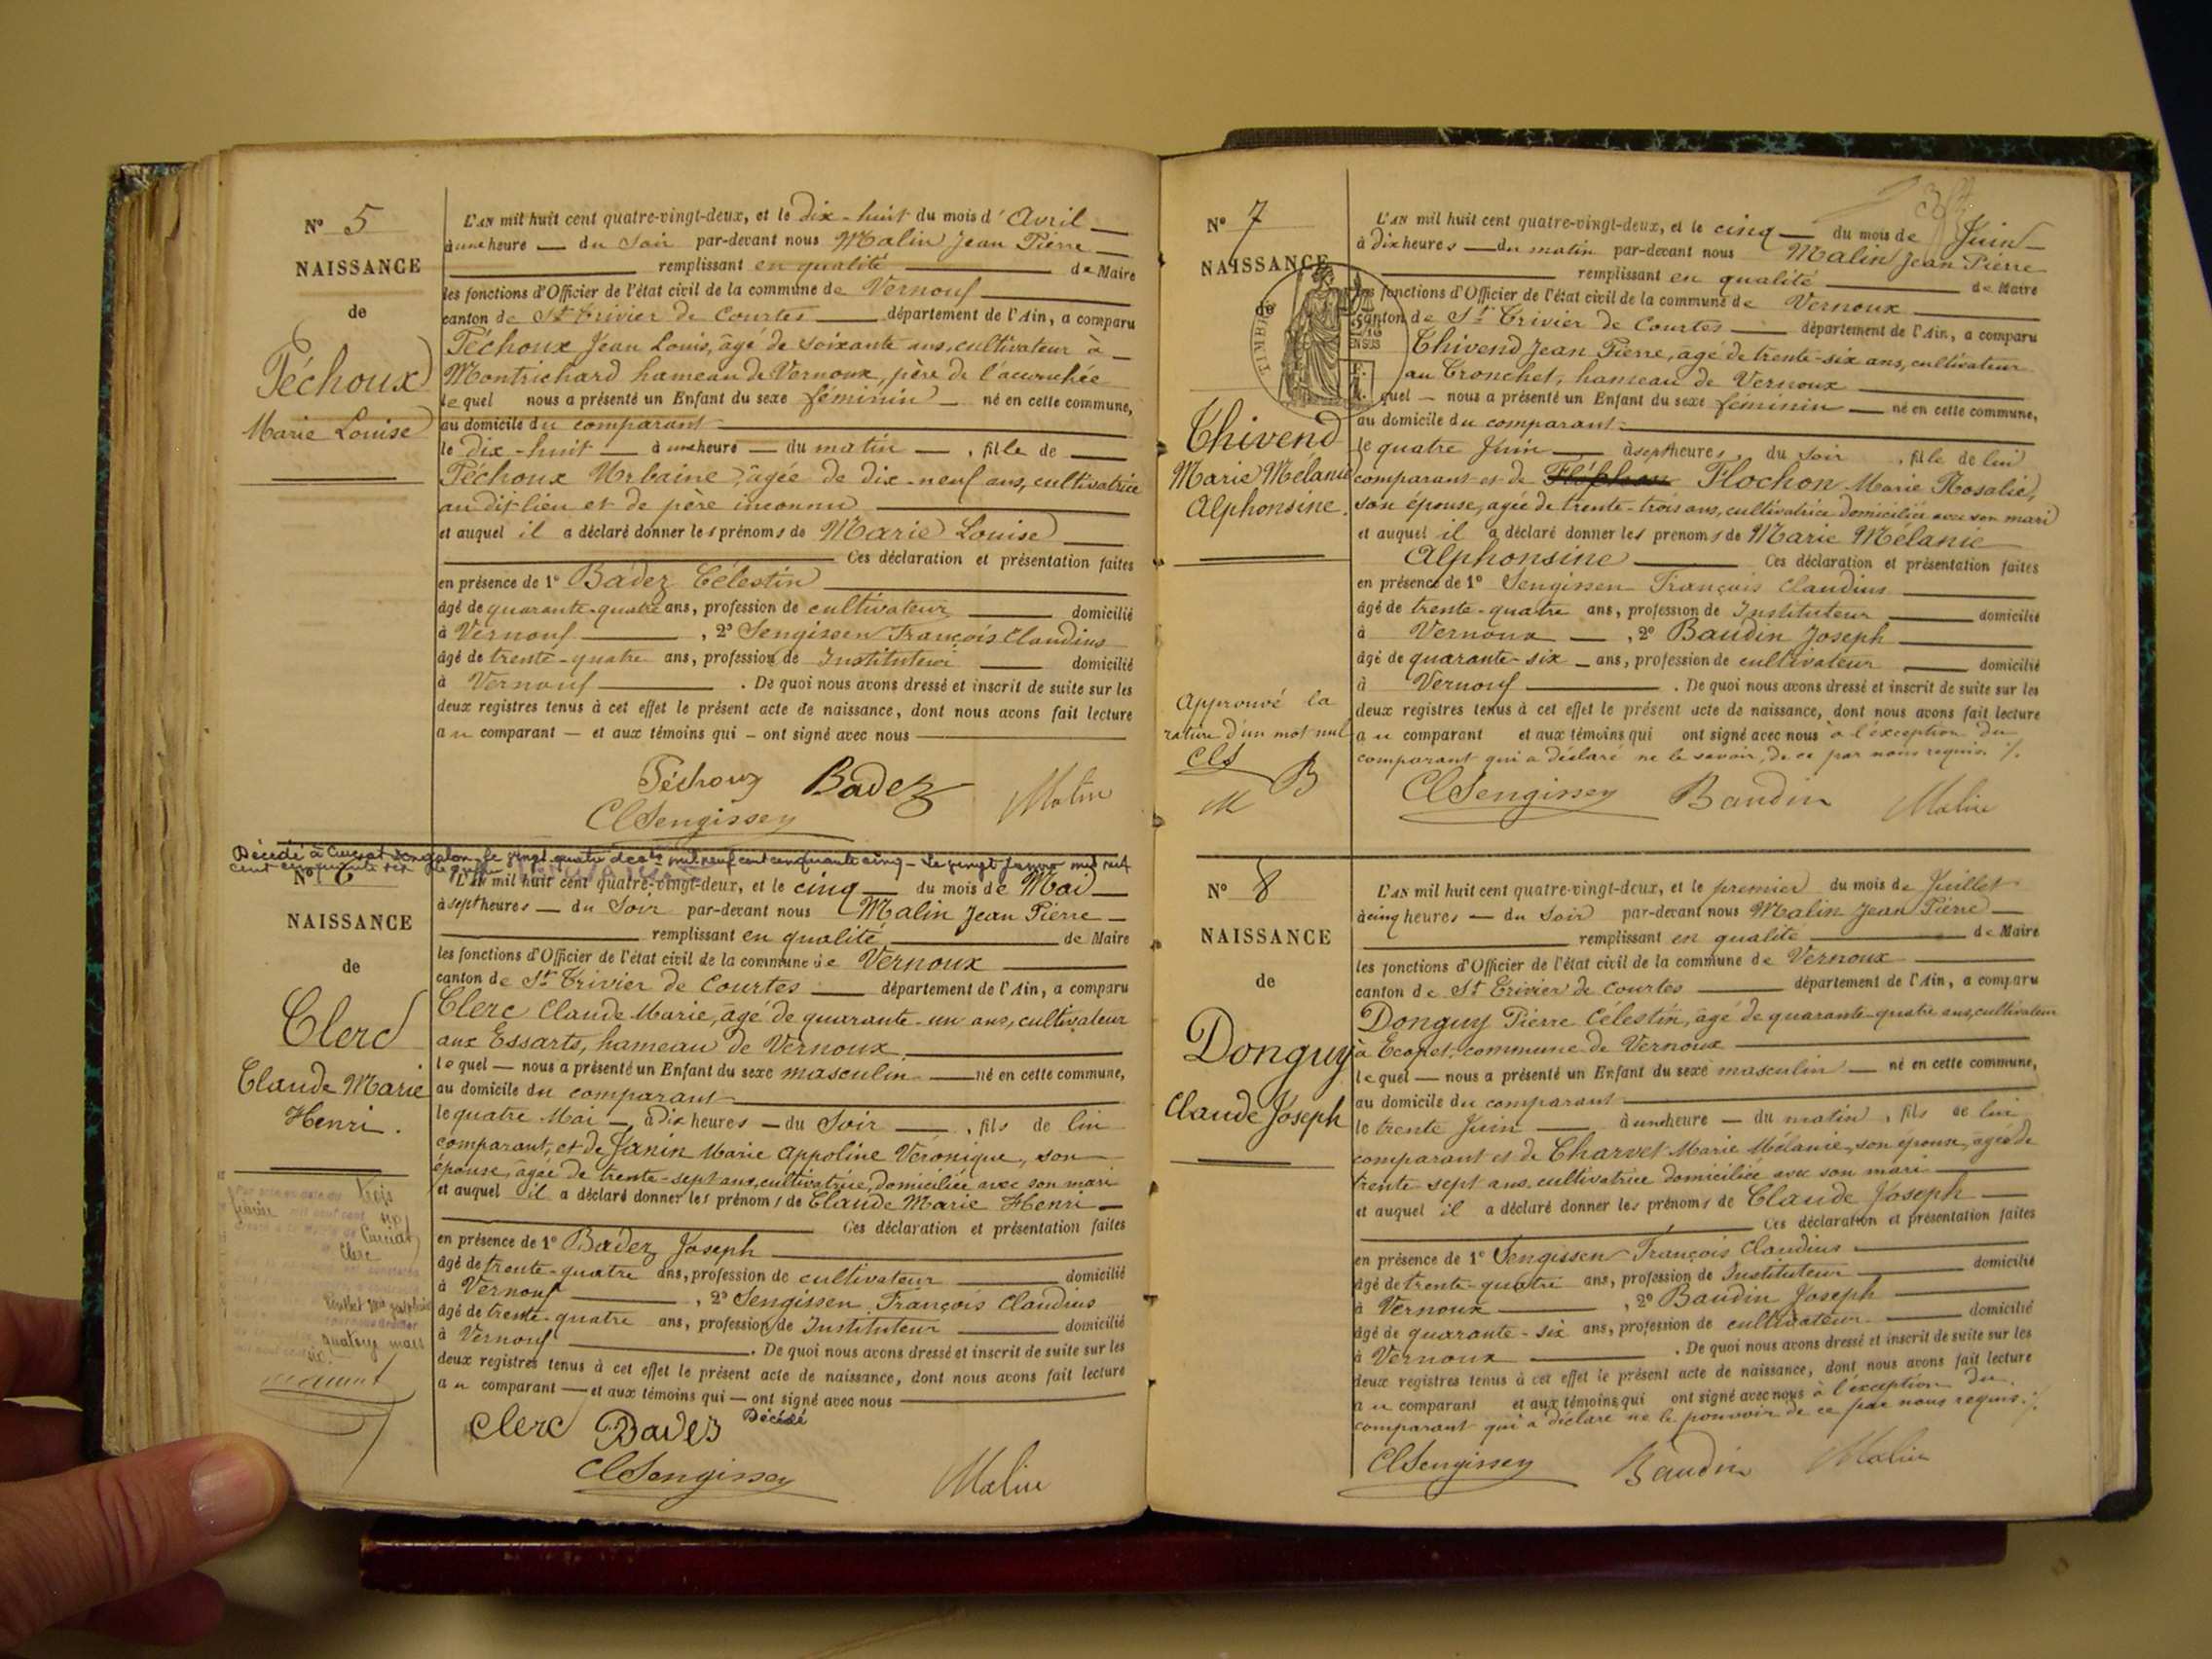 N° 5
NAISSANCE
de
Péchoux
Marie Louise
L'AN mil huit cent quatre-vingt-deux, et le dix-huit du mois d'Avril
à une heure du Soir par-devant nous Malin Jean Pierre
remplissant en qualité de Maire
les fonctions d'Officier de l'état civil de la commune de Vernoux
canton de St Trivier de Courtes département de l'Ain, a comparu
Péchoux Jean Louis, âgé de soixante ans, cultivateur à
Montrichard hameau de Vernoux, père de l'accouchée
lequel nous a présenté un Enfant du sexe féminin né en cette commune,
au domicile du comparant
le dix-huit à une heure du matin, fille de
Péchoux Urbaine, âgée de dix-neuf ans, cultivatrice
au dit lieu et de père inconnu
et auquel il a déclaré donner les prénoms de Marie Louise
Ces déclaration et présentation faites
en présence de 1° Badez Célestin
âgé de quarante-quatre ans, profession de cultivateur domicilié
à Vernoux, 2° Sengissen François Claudius
âgé de trente-quatre ans, profession de Instituteur domicilié
à Vernoux. De quoi nous avons dressé et inscrit de suite sur les
deux registres tenus à cet effet le présent acte de naissance, dont nous avons fait lecture
au comparant et aux témoins qui ont signé avec nous
Péchoux Badez Malin
Cl Sengissen
Décédé à Curciat Dongalon le vingt quatre mil neuf cent cinquante cinq - Le vingt mil neuf
cent cinquante six
N° 6
NAISSANCE
de
Clerc
Claude Marie
Henri.
trois
six
Curciat
Clerc
quatorze mars
six
L'AN mil huit cent quatre-vingt-deux, et le cinq du mois de Mai
à sept heures du Soir par-devant nous Malin Jean Pierre
remplissant en qualité de Maire
les fonctions d'Officier de l'état civil de la commune de Vernoux
canton de St Trivier de Courtes département de l'Ain, a comparu
Clerc Claude Marie, âgé de quarante-un ans, cultivateur
aux Essarts, hameau de Vernoux
lequel nous a présenté un Enfant du sexe masculin né en cette commune,
au domicile du comparant
le quatre Mai à dix heures du Soir, fils de lui
comparant, et de Janin Marie Appoline Véronique, son
épouse, âgée de trente-sept ans, cultivatrice, domiciliée avec son mari
et auquel il a déclaré donner les prénoms de Claude Marie Henri
Ces déclaration et présentation faites
en présence de 1° Badez Joseph
âgé de trente-quatre ans, profession de cultivateur domicilié
à Vernoux, 2° Sengissen François Claudius
âgé de trente-quatre ans, profession de Instituteur domicilié
à Vernoux. De quoi nous avons dressé et inscrit de suite sur les
deux registres tenus à cet effet le présent acte de naissance, dont nous avons fait lecture
au comparant et aux témoins qui ont signé avec nous
Clerc Badez Décédé
Cl Sengissen Malin
N° 7
NAISSANCE
de
TIMBRE
Thivend
Marie Mélanie
Alphonsine.
Approuvé la
rature d'un mot nul
ClS B
M
L'AN mil huit cent quatre-vingt-deux, et le cinq du mois de Juin
à dix heures du matin par-devant nous Malin Jean Pierre
remplissant en qualité de Maire
les fonctions d'Officier de l'état civil de la commune de Vernoux
canton de St Trivier de Courtes département de l'Ain, a comparu
Thivend Jean Pierre, âgé de trente-six ans, cultivateur
au Tronchet, hameau de Vernoux
quel nous a présenté un Enfant du sexe féminin né en cette commune,
au domicile du comparant
le quatre Juin à sept heures du Soir, fille de lui
comparant et de Flochon Marie Rosalie,
son épouse, agée de trente-trois ans, cultivatrice domiciliée avec son mari
et auquel il a déclaré donner les prénoms de Marie Mélanie
Alphonsine Ces déclaration et présentation faites
en présence de 1° Sengissen François Claudius
âgé de trente-quatre ans, profession de Instituteur domicilié
à Vernoux, 2° Baudin Joseph
âgé de quarante-six ans, profession de cultivateur domicilié
à Vernoux. De quoi nous avons dressé et inscrit de suite sur les
deux registres tenus à cet effet le présent acte de naissance, dont nous avons fait lecture
au comparant et aux témoins qui ont signé avec nous à l'exception du
comparant qui a déclaré ne le savoir, de ce par nous requis. /.
Cl Sengissen Baudin Malin
N° 8
NAISSANCE
de
Donguy
Claude Joseph
L'AN mil huit cent quatre-vingt-deux, et le premier du mois de Juillet
à cinq heures du Soir par-devant nous Malin Jean Pierre
remplissant en qualité de Maire
les fonctions d'Officier de l'état civil de la commune de Vernoux
canton de St Trivier de Courtes département de l'Ain, a comparu
Donguy Pierre Célestin, âgé de quarante-quatre ans, cultivateur
à Ecopet, commune de Vernoux
lequel nous a présenté un Enfant du sexe masculin né en cette commune,
au domicile du comparant
le trente Juin à une heure du matin, fils de lui
comparant et de Charvet Marie Mélanie, son épouse, agée de
trente sept ans, cultivatrice domiciliée avec son mari
et auquel il a déclaré donner les prénoms de Claude Joseph
Ces déclaration et présentation faites
en présence de 1° Sengissen François Claudius
âgé de trente-quatre ans, profession de Instituteur domicilié
à Vernoux, 2° Baudin Joseph
âgé de quarante-six ans, profession de cultivateur domicilié
à Vernoux. De quoi nous avons dressé et inscrit de suite sur les
deux registres tenus à cet effet le présent acte de naissance, dont nous avons fait lecture
au comparant et aux témoins qui ont signé avec nous à l'exception du
comparant qui a déclaré ne le pouvoir de ce par nous requis. /.
Cl Sengissen Baudin Malin